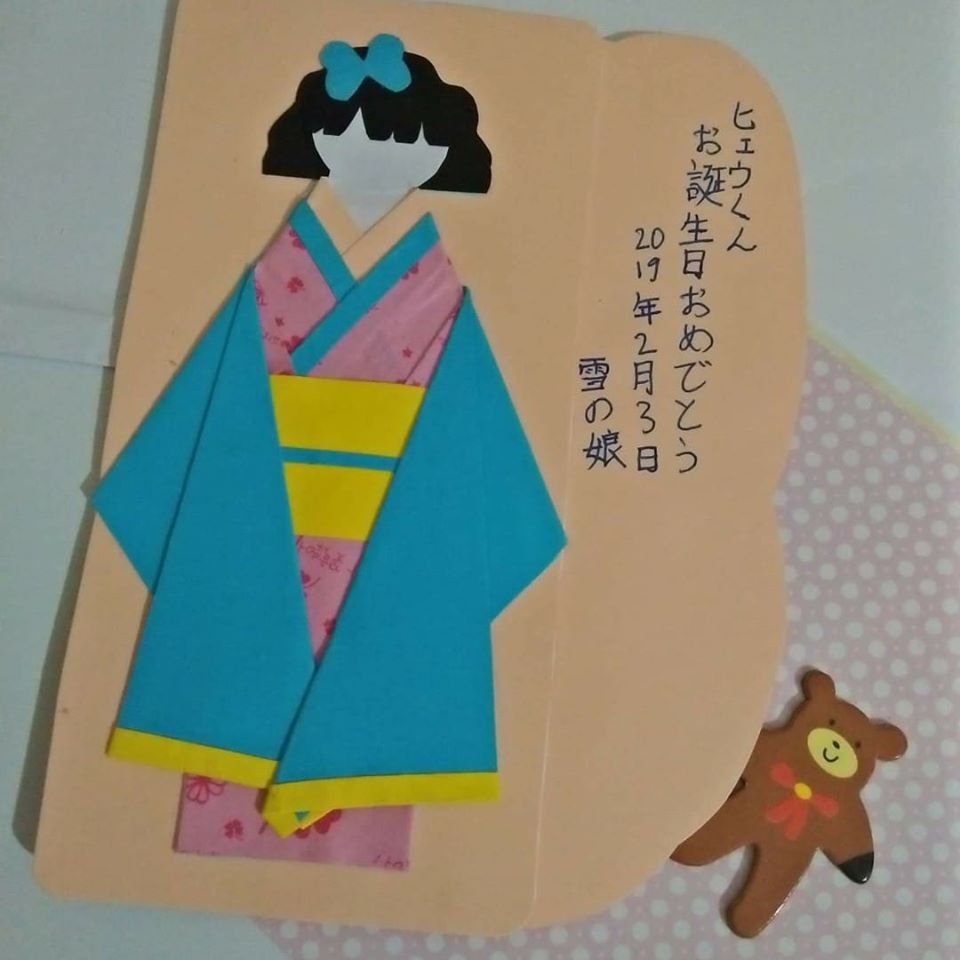 ヒェウくん
お誕生日おめでとう
2019年2月3日
雪の娘